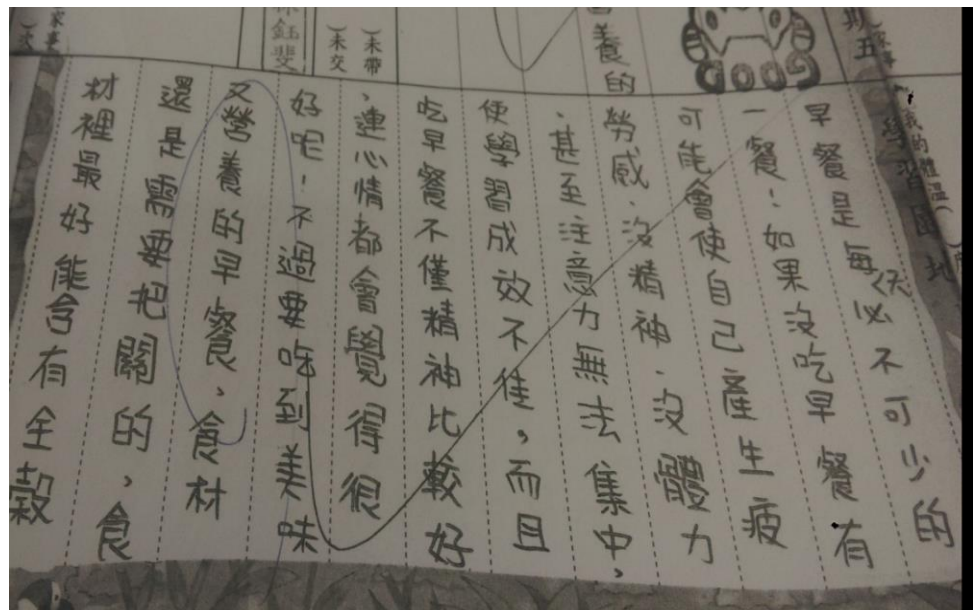 我的體溫
學習園地
期五
養的
）未帶
）未交
鈺斐
早餐是每天必不可少的
一餐！如果沒吃早餐有
可能會使自己產生疲
勞感、沒精神、沒體力
、甚至注意力無法集中，
使學習成效不佳，而且
吃早餐不僅精神比較好
，連心情都會覺得很
好呢！不過要吃到美味
又營養的早餐，食材
還是需要把關的，食
材裡最好能含有全穀